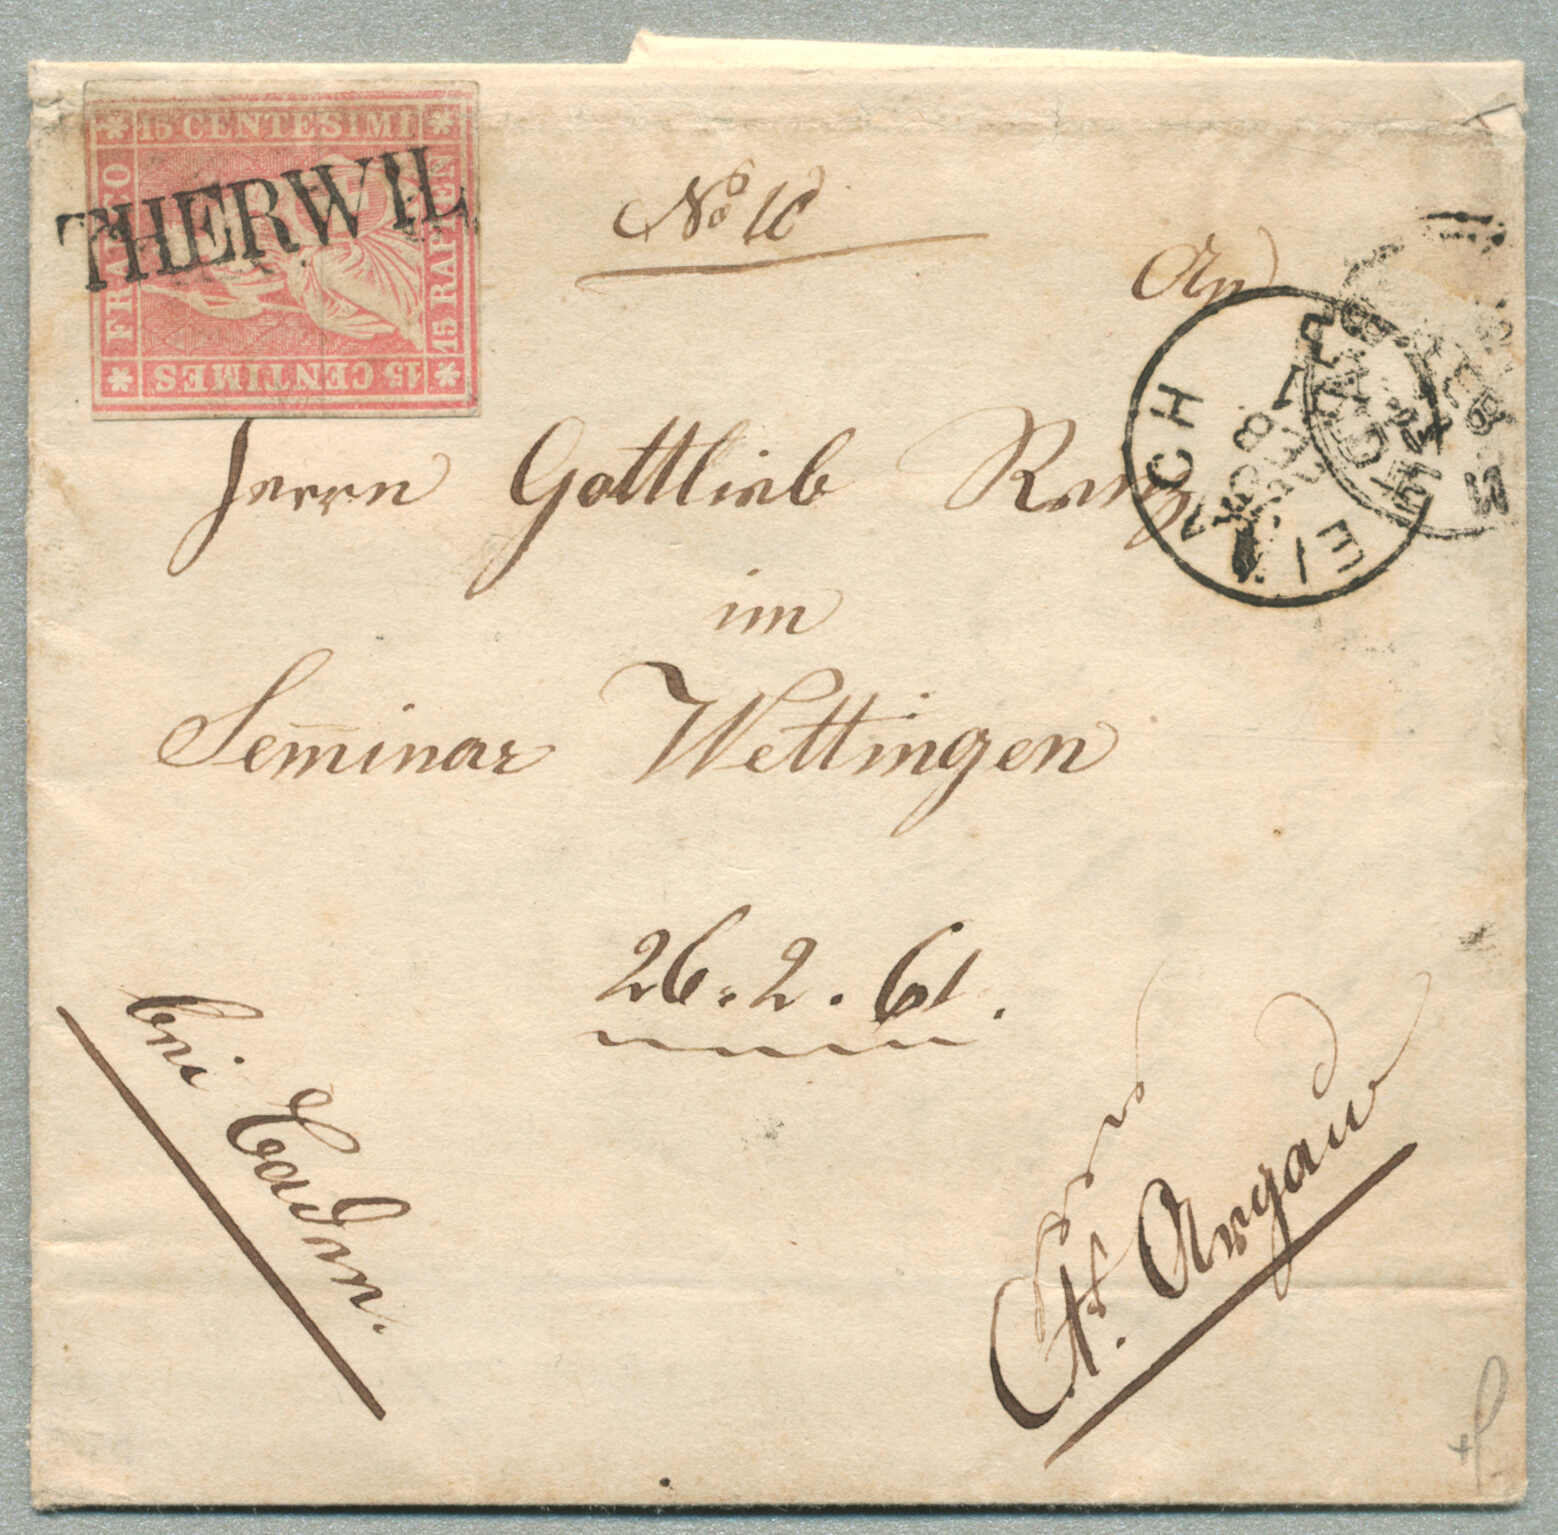 15 CENTESIMI
FRANCO
15 RAPPEN
15 CENTIMES
THERWIL
No 10
An
Herrn Gottlieb
im
Sem̅inar Wettingen
26. 2. 61.
bei Baden.
Kt. Argau